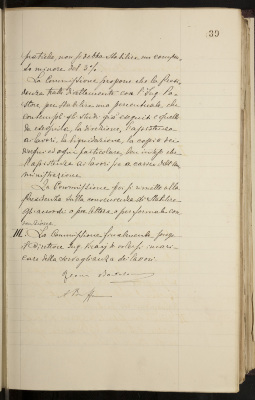 39
pratiche, non si debba stabilire un compenso
so minore del 3%.
La Commissione propone che la Presi-
denza tratti direttamente con l'Ing. Pa-
store per stabilire una percentuale, che
contempli gli studi già eseguiti e quelli
da eseguirsi, la direzione, l'assistenza
ai lavori, la liquidazione, la copia dei
disegni ed ogni particolare, ben inteso che
l'assistenza ai lavori sia a carico dell'Am-
ministrazione
La Commissione poi si rimette alla
Presidenza sulla convenienza di stabilire
gli accordi o per lettera o per formale con-
venzione.
III. La Commissione finalmente
il Direttore Ing. di
care della sorveglianza di lavori.
Roma